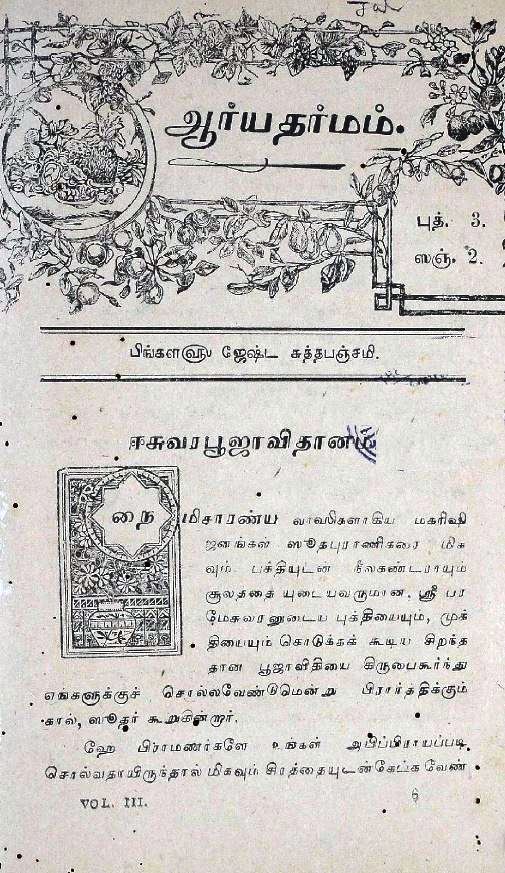 ஆர்யதர்மம்.
புத். 3.
ஸஞ். 2.
பிங்கள௵ ஜேஷ்ட சுத்தபஞ்சமி.
ஈசுவரபூஜாவிதானம்
நைமிசாரண்ய வாஸிகளாகிய மகரிஷி
ஜனங்கள் ஸூதபுராணிகரை மிக
வும் பக்தியுடன் நீலகண்டராயும்
சூலத்தை யுடையவருமான, ஸ்ரீ பர
மேசுவரனுடைய புக்தியையும், முக்
தியையும் கொடுக்கக் கூடிய சிறந்த
தான பூஜாவிதியை கிருபைகூர்ந்து
எங்களுக்குச் சொல்லவேண்டுமென்று பிரார்த்திக்கும்
கால், ஸூதர் கூறுகின்றார்.
ஹே பிராமணர்களே உங்கள் அபிப்பிராயப்படி
சொல்வதாயிருந்தால் மிகவும் சிரத்தையுடன்கேட்க வேண்
VOL. III. 6